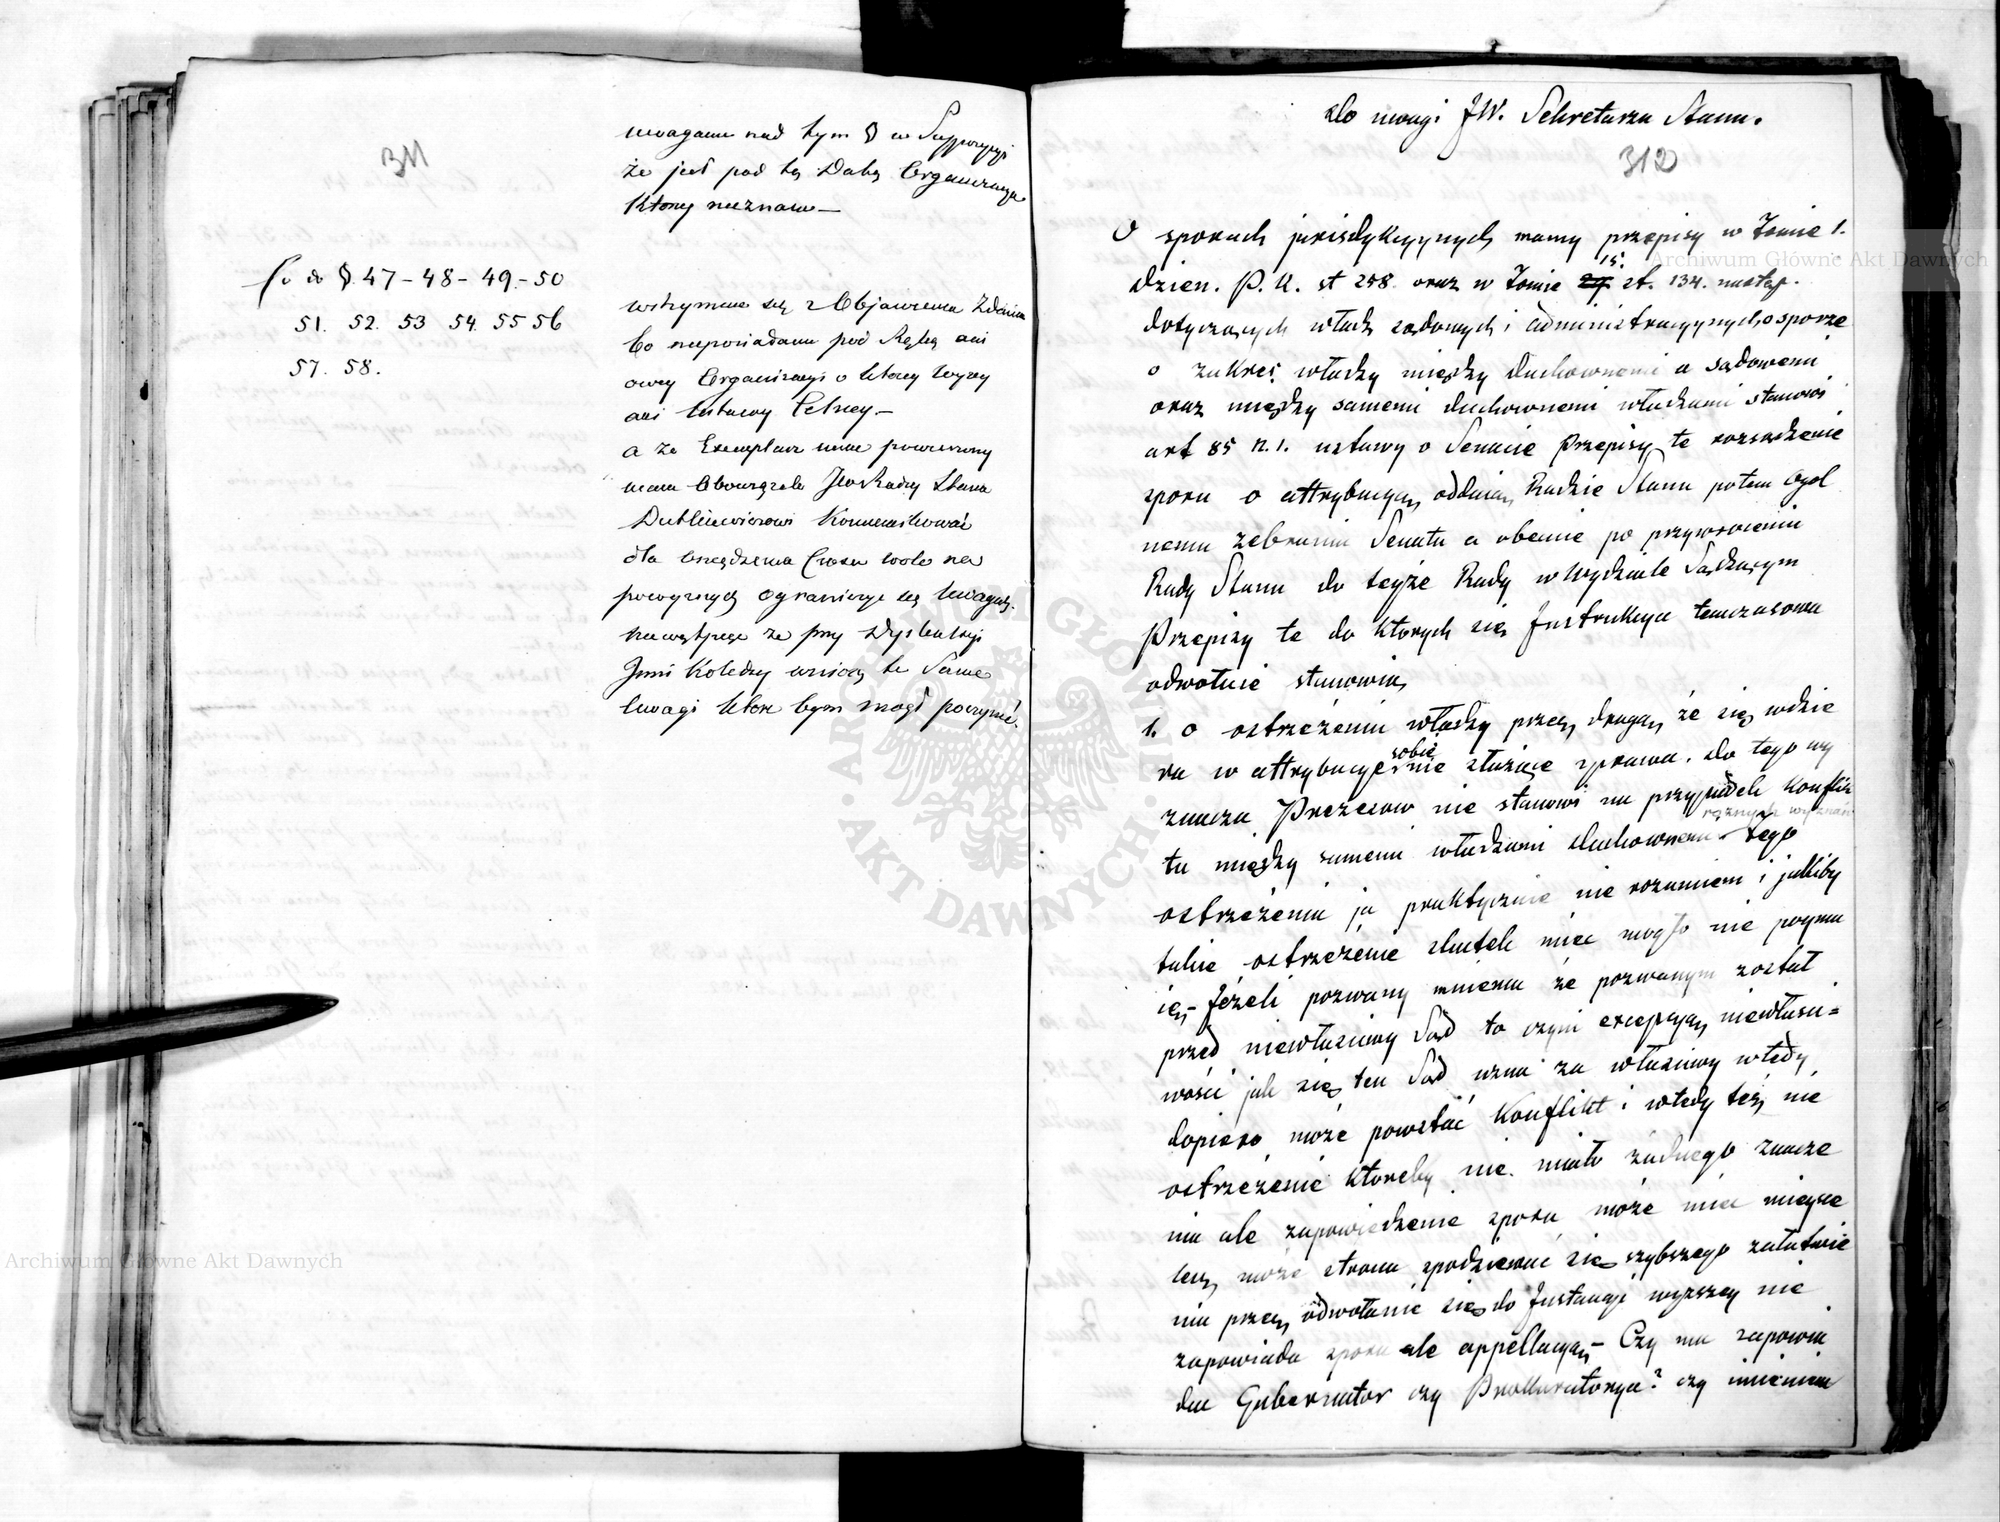 311
uwagami nad tym § w Suppozycyi
że jest pod tą Datą Organizacya
Ktorey nieznam —
Co do §. 47 - 48 - 49. - 50
51. 52. 53 54. 55 56
57. 58.
wstrzymuię się z Objawienia Zdania
bo nieposiadam pod Ręką ani
owey Organizacyi o ktorey wyzey
ani Ustawy Celney. —
a że Exemplarz mnie powierzony
mam Obowiązek JW Radcy Stanu
Dubliewiczowi Kommunikować
dla oszczędzenia Czasu wolę na
powyzszych ograniczyć się Uwagach.
niewątpiąc że przy Dyskussyi
Inni Koledzy wniosą te Same
Uwagi ktore bym mogł poczynić.
do uwagi JW. Sekretarza Stanu.
312
O sporach jurisdykcyynych mamy przepisy w Tomie 1.
dzien. P. K. st 258. oraz w Tomie 15. st. 134. nastąp.
dotyczących władz sądowych i administracyynych o sporze
o zakres władzy między duchownemi a sądowemi
oraz między samemi duchownemi władzami stanowi
art 85 n. 1. ustawy o Senacie Przepisy te rozsądzenie
sporu o attrybucyą oddaią Radzie Stanu potem Ogól
nemu zebraniu Senatu a obecnie po przywróceniu
Rady Stanu do teyże Rady w Wydziale Sądzącym
Przepisy te do ktorych się Instrukcya temczasowa
odwołuie stanowią
1. o ostrzeżeniu władzy przez drugą, że się wdzie
ra w attrybucye sobie nie służące sprawa. do tego wy
znacza Prezesow nie stanowi na przypadek konflik
tu między samemi władzami duchownemi roznych wyznań tego
ostrzeżenia ja praktycznie nie rozumiem i jakiby
takie ostrzeżenie skutek miec mogło nie poymu
ię — Jeżeli pozwany mniema że pozwanym został
przed niewłaściwy Sąd to czyni excepcyą niewłaści=
wości jak się ten Sąd uzna za właściwy wtedy
dopiero może powstać Konflikt i wtedy też nie
ostrzeżenie ktoreby nie miało żadnego znacze
nia ale zapowiedzenie sporu może miec mieysce
lecz może strona spodziewać się szybszego załatwie
nia przez odwołanie się do Instancyi wyzszey nie
zapowiada sporu ale appellacyą — Czy ma zapowia
dać Gubernator czy Prokuratorya? czy imieniem
Archiwum Główne Akt Dawnych
Archiwum Główne Akt Dawnych
ARCHIWUM GŁÓWNE AKT DAWNYCH